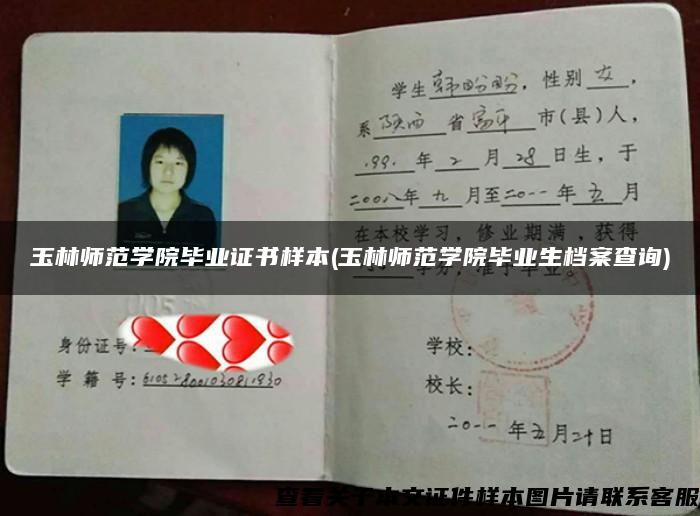 身份证号:
学 籍 号: 610528001030811930
学生韩盼盼, 性别 女,
系 陕西 省富平 市(县)人,
199. 年 2 月 28 日生, 于
二00八年 九 月至二0一一 年 五 月
在本校学习, 修业期满, 获得
学分, 准予毕业。
学校:
校长:
二0一一 年五月二十日
玉林师范学院毕业证书样本(玉林师范学院毕业生档案查询)
查看关于本文证件样本图片请联系客服